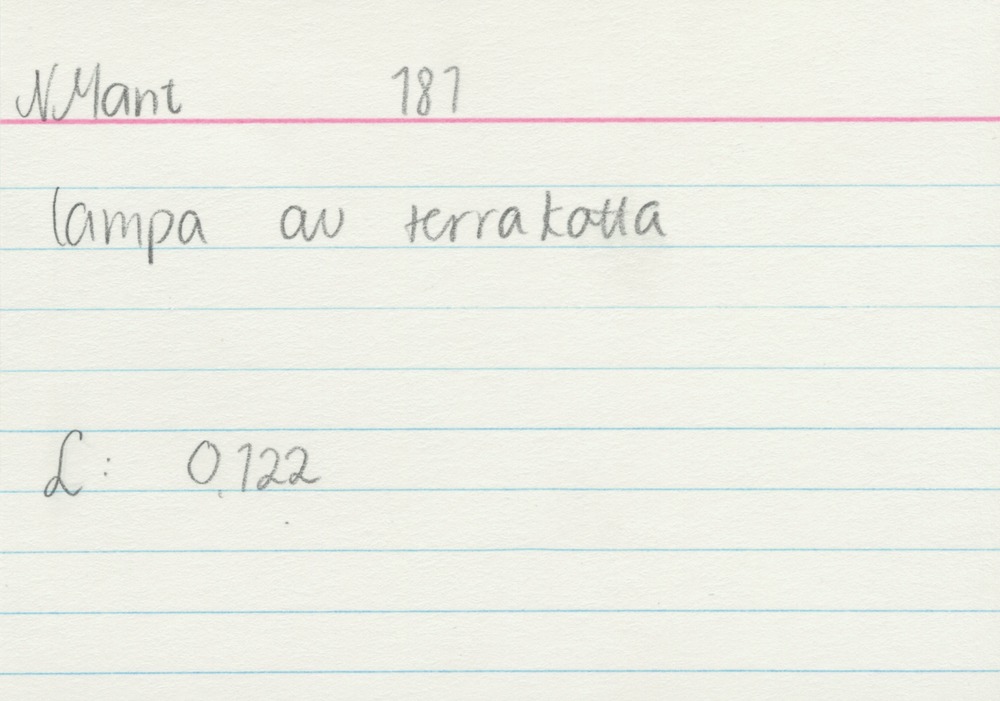 NMant 181
lampa av terrakotta
L: 0,122